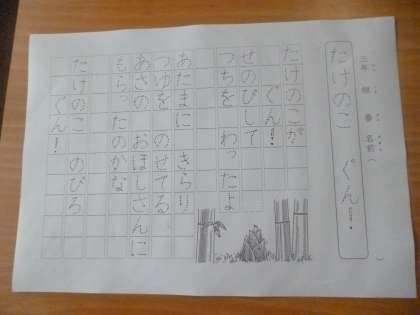 たけのこ ぐん！
三年 組 番 名前（ ）
たけのこが
ぐん！
せのびして
つちを わったよ
あたまに きらり
つゆを のせてる
あさの おほしさんに
もらったのかな
たけのこ のびろ
ぐん！